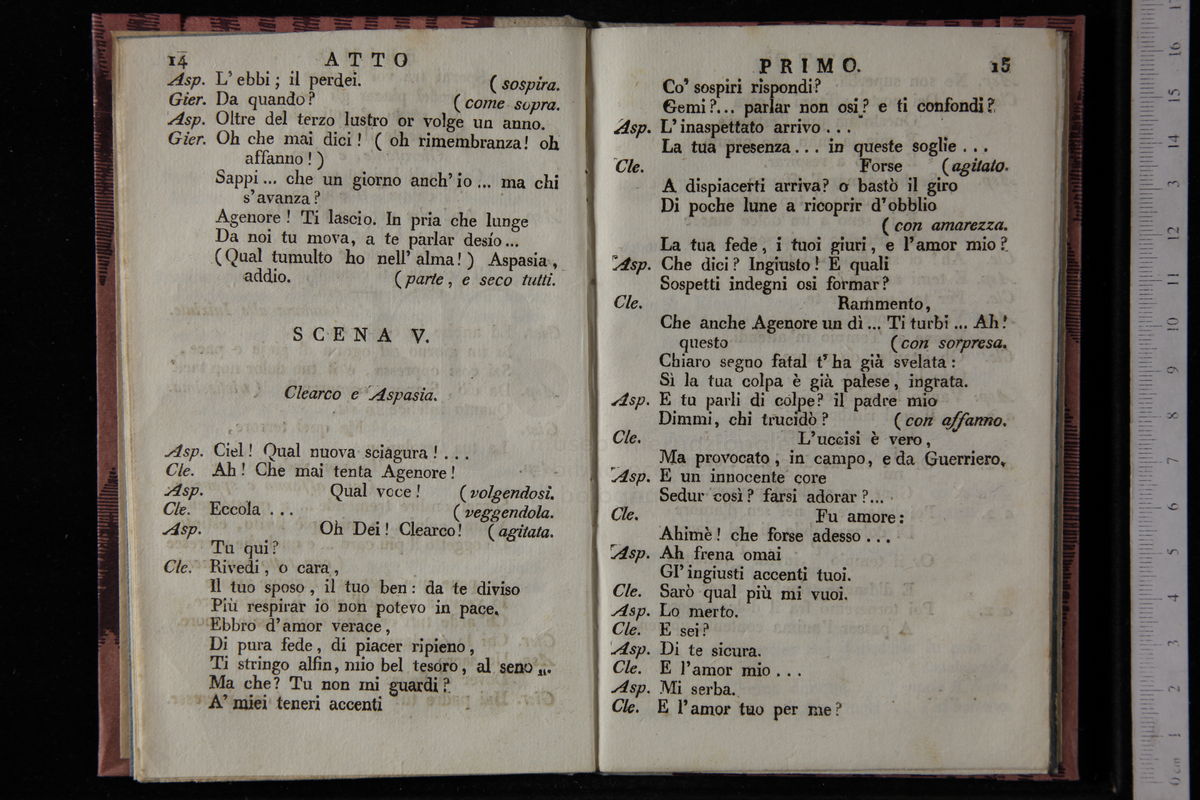 14 ATTO
Asp. L' ebbi; il perdei. ( sospira.
Gier. Da quando? ( come sopra.
Asp. Oltre del terzo lustro or volge un anno.
Gier. Oh che mai dici! ( oh rimembranza! oh
affanno! )
Sappi ... che un giorno anch' io ... ma chi
s' avanza?
Agenore! Ti lascio. In pria che lunge
Da noi tu mova, a te parlar desio ...
( Qual tumulto ho nell' alma! ) Aspasia,
addio. ( parte, e seco tutti.
SCENA V.
Clearco e Aspasia.
Asp. Ciel! Qual nuova sciagura! ...
Cle. Ah! Che mai tenta Agenore!
Asp. Qual voce! ( volgendosi.
Cle. Eccola ... ( veggendola.
Asp. Oh Dei! Clearco! ( agitata.
Tu qui?
Cle. Rivedi, o cara,
Il tuo sposo, il tuo ben: da te diviso
Più respirar io non potevo in pace.
Ebbro d' amor verace,
Di pura fede, di piacer ripieno,
Ti stringo alfin, mio bel tesoro, al seno ...
Ma che? Tu non mi guardi?
A' miei teneri accenti
PRIMO. 15
Co' sospiri rispondi?
Gemi?... parlar non osi? e ti confondi?
Asp. L' inaspettato arrivo ...
La tua presenza ... in queste soglie ...
Cle. Forse ( agitato.
A dispiacerti arriva? o bastò il giro
Di poche lune a ricoprir d' obblio
( con amarezza.
La tua fede, i tuoi giuri, e l' amor mio?
Asp. Che dici? Ingiusto! E quali
Sospetti indegni osi formar?
Cle. Rammento,
Che anche Agenore un dì ... Ti turbi ... Ah!
questo ( con sorpresa.
Chiaro segno fatal t' ha già svelata:
Sì la tua colpa è già palese, ingrata.
Asp. E tu parli di colpe? il padre mio
Dimmi, chi trucidò? ( con affanno.
Cle. L' uccisi è vero,
Ma provocato, in campo, e da Guerriero.
Asp. E un innocente core
Sedur così? farsi adorar?...
Cle. Fu amore:
Ahimè! che forse adesso ...
Asp. Ah frena omai
Gl' ingiusti accenti tuoi.
Cle. Sarò qual più mi vuoi.
Asp. Lo merto.
Cle. E sei?
Asp. Di te sicura.
Cle. E l' amor mio ...
Asp. Mi serba.
Cle. E l' amor tuo per me?
0 cm 1 2 3 4 5 6 7 8 9 10 11 12 13 14 15 16 17